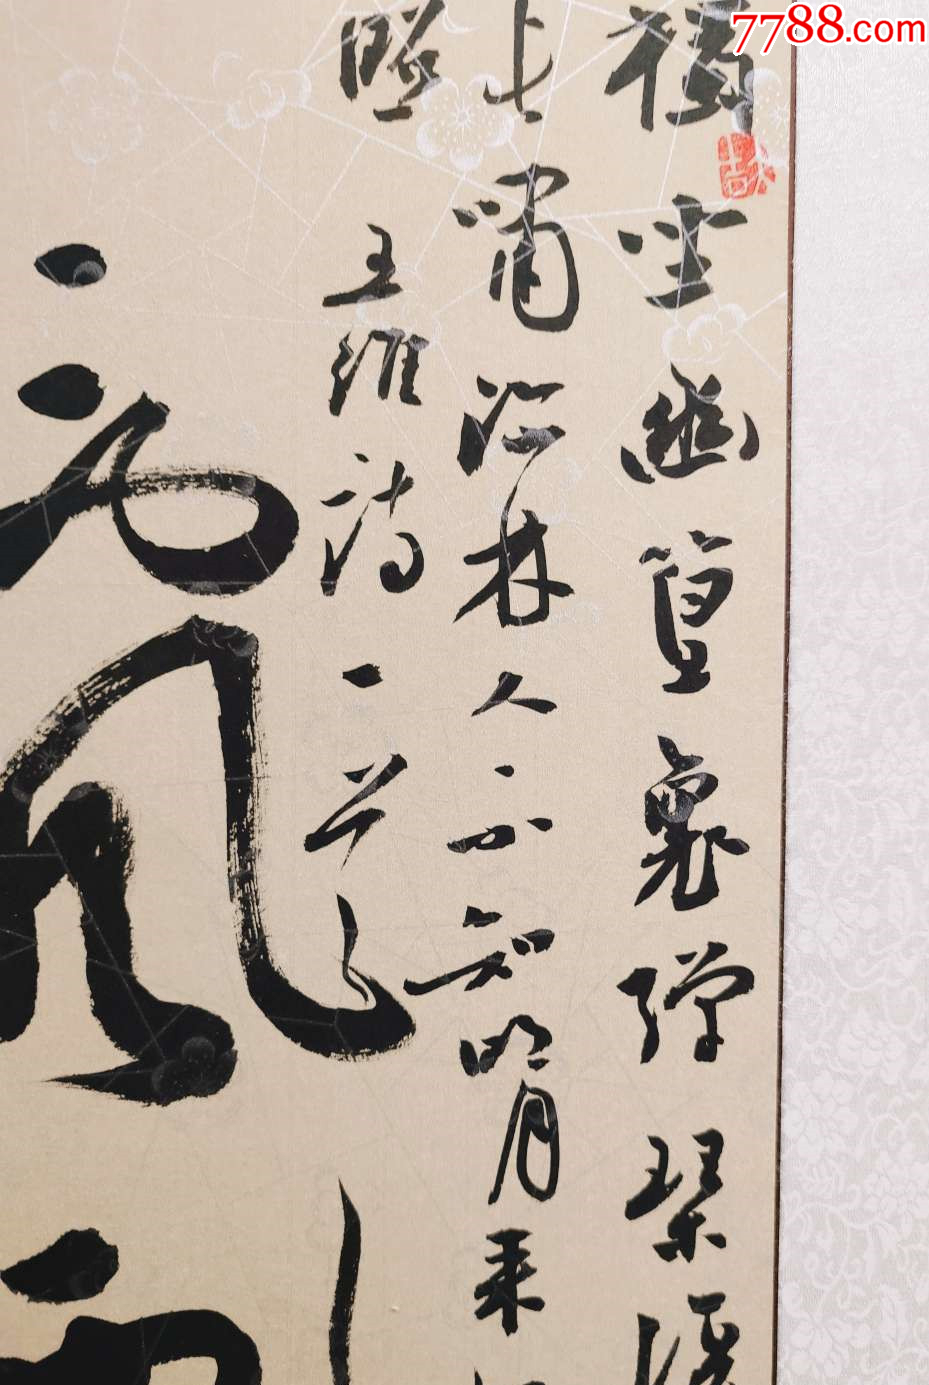 7788.com
獨坐幽篁裏彈琴復
嘯深林人不知明月来
照 王維詩一首
風